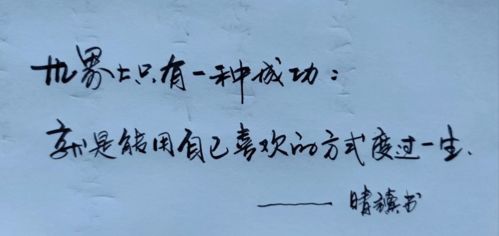 世界上只有一种成功：
就是能用自己喜欢的方式度过一生.
—— 晴 书